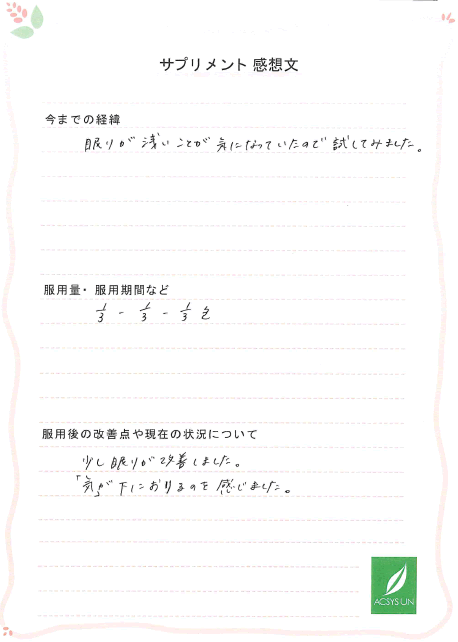 サプリメント 感想文
今までの経緯
眠りが 浅い ことが 気になっていたので 試してみました。
服用量・服用期間など
1/3 - 1/3 - 1/3 包
服用後の改善点や現在の状況について
少し眠りが改善しました。
「気」が下におりるのを感じました。
ACSYSUN